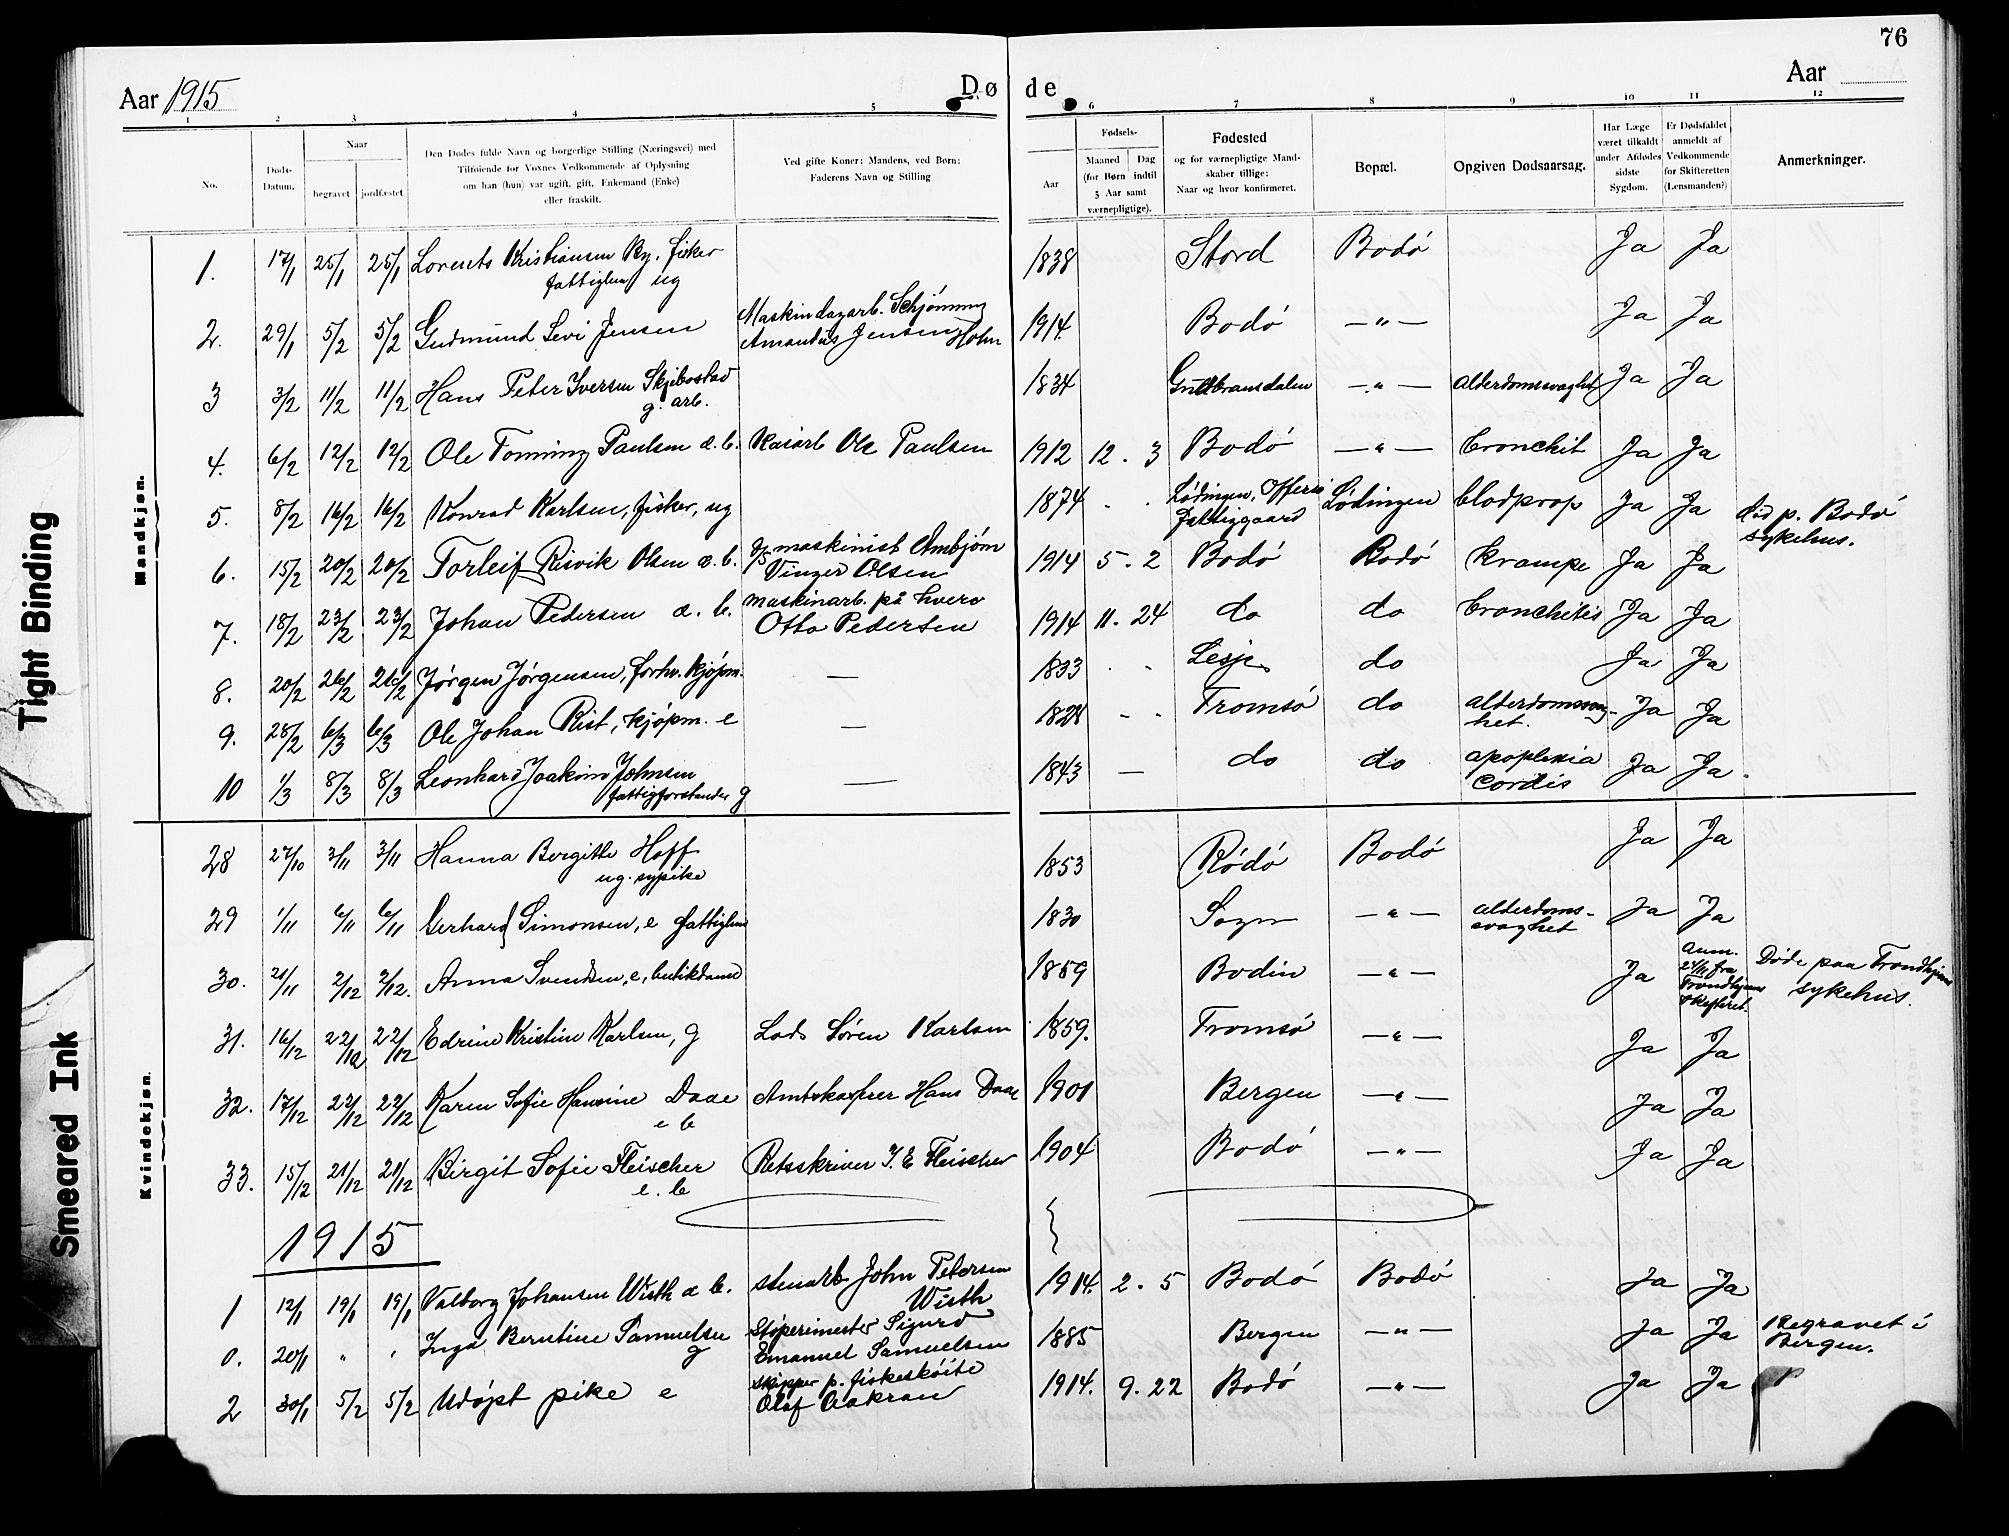 76
Aar 1915
Døde
Aar
1 2 3 4 5 6 7 8 9 10 11 12
No.
Døds-Datum.
Naar
begravet jordfæstet
Den Dødes fulde Navn og borgerlige Stilling (Næringsvei) med
Tilføiende for Voxnes Vedkommende af Oplysning
om han (hun) var ugift, gift, Enkemand (Enke)
eller fraskilt.
Ved gifte Koner: Mandens, ved Børn:
Faderens Navn og Stilling
Fødsels-
Aar
Maaned Dag
(for Børn indtil
5 Aar samt
værnepligtige).
Fødested
og for værnepligtige Mand-
skaber tillige:
Naar og hvor konfirmeret.
Bopæl.
Opgiven Dødsaarsag.
Har Læge
været tilkaldt
under Afdødes
sidste
Sygdom.
Er Dødsfaldet
anmeldt af
Vedkommende
for Skifteretten
(Lensmanden?)
Anmerkninger.
Mandkjøn.
1. 17/1 25/1 25/1 Lorents Kristiansen Ry, fisker 1838 Stord Bodó Ja Ja
fattiglem ug
2. 29/1 5/2 5/2 Gudmund Levi Jensen Maskindagarb. Schjønning 1914. Bodó —"— Ja Ja
Amandus Jensen Holm
3 3/2 11/2 11/2 Hans Peter Iversen Skjebostad 1834 Gudbransdalen —"— alderdomssvaghet Ja Ja
g. arb.
4. 6/2 12/2 12/2 Ole Tonning Paulsen æ. b. Kaiarb Ole Paulsen 1912 12 . 3 Bodó —"— bronchit Ja Ja
5. 8/2 16/2 16/2 Konrad Karlsen, fisker, ug 1874 . . Lødingen, Offersø Lødingen blodprop Ja Ja død p. Bodó
fattiggaard sykehus.
6. 15/2 20/2 20/2 Torleif Risvik Olsen æ. b. maskinist Arnbjørn 1914 5 . 2 Bodó Bodó krampe Ja Ja
Vinger Olsen
7. 18/2 23/2 23/2 Johan Pedersen æ. b. maskinarb. på hverv 1914 11 . 24 do do bronchitis Ja Ja
Otto Pedersen
8. 20/2 26/2 26/2 Jørgen Jørgensen, forhv. kjøpm. — 1833 . . Lesje do Ja Ja
9. 28/2 6/3 6/3 Ole Johan Rist, kjøpm. e — 1828 - . Tromsó do alderdomssvag-
het. Ja Ja
10 1/3 8/3 8/3 Leonhard Joakim Johnsen — 1843 — do do apoplexia Ja Ja.
fattigforstander g cordis
Kvindekjøn.
28 27/10 3/11 3/11 Hanna Bergitte Hoff 1853 Ródó Bodó Ja Ja
ug. sypike
29 1/11 6/11 6/11 Gerhard Simonsen, e fattiglem 1830 Sogn —"— alderdoms-
svaghet Ja Ja
30. 21/11 2/12 2/12. Anna Svendsen, e, butikdame 1859 Bodin —"— Ja Anm. 24/11 fra Trondhjems skifteret. Døde paa Trondhjems
sykehus.
31. 16/12 22/12 22/12 Edrine Kristine Karlsen, g Lods Søren Karlsen 1859. Tromsó —"— Ja Ja
32. 17/12 22/12 22/12 Karen Sofie Hansine Daae Amtskasserer Hans Daae 1901 Bergen —"— Ja Ja
e b
33. 15/12 21/12 21/12 Birgit Sofie Fleischer Retsskriver J. E Fleischer 1904 Bodó —"— Ja Ja
e. b
1915
1 12/1 19/1 19/1 Valborg Johansen Wisth æ b. stenarb John Petersen 1914. 2 . 5 Bodó Bodó Ja Ja
Wisth
0. 20/1 " " Inga Berntine Samuelsen Støperimester Sigurd 1885 Bergen —"— Ja Ja Begravet i
g Emanuel Samuelsen Bergen.
2 30/1 5/2 5/2 Udøpt pike e skipper p. fiskeskóite 1914. 9. 22 Bodó —"— Ja Ja
Olaf Aakran
Tight Binding
Smeared Ink